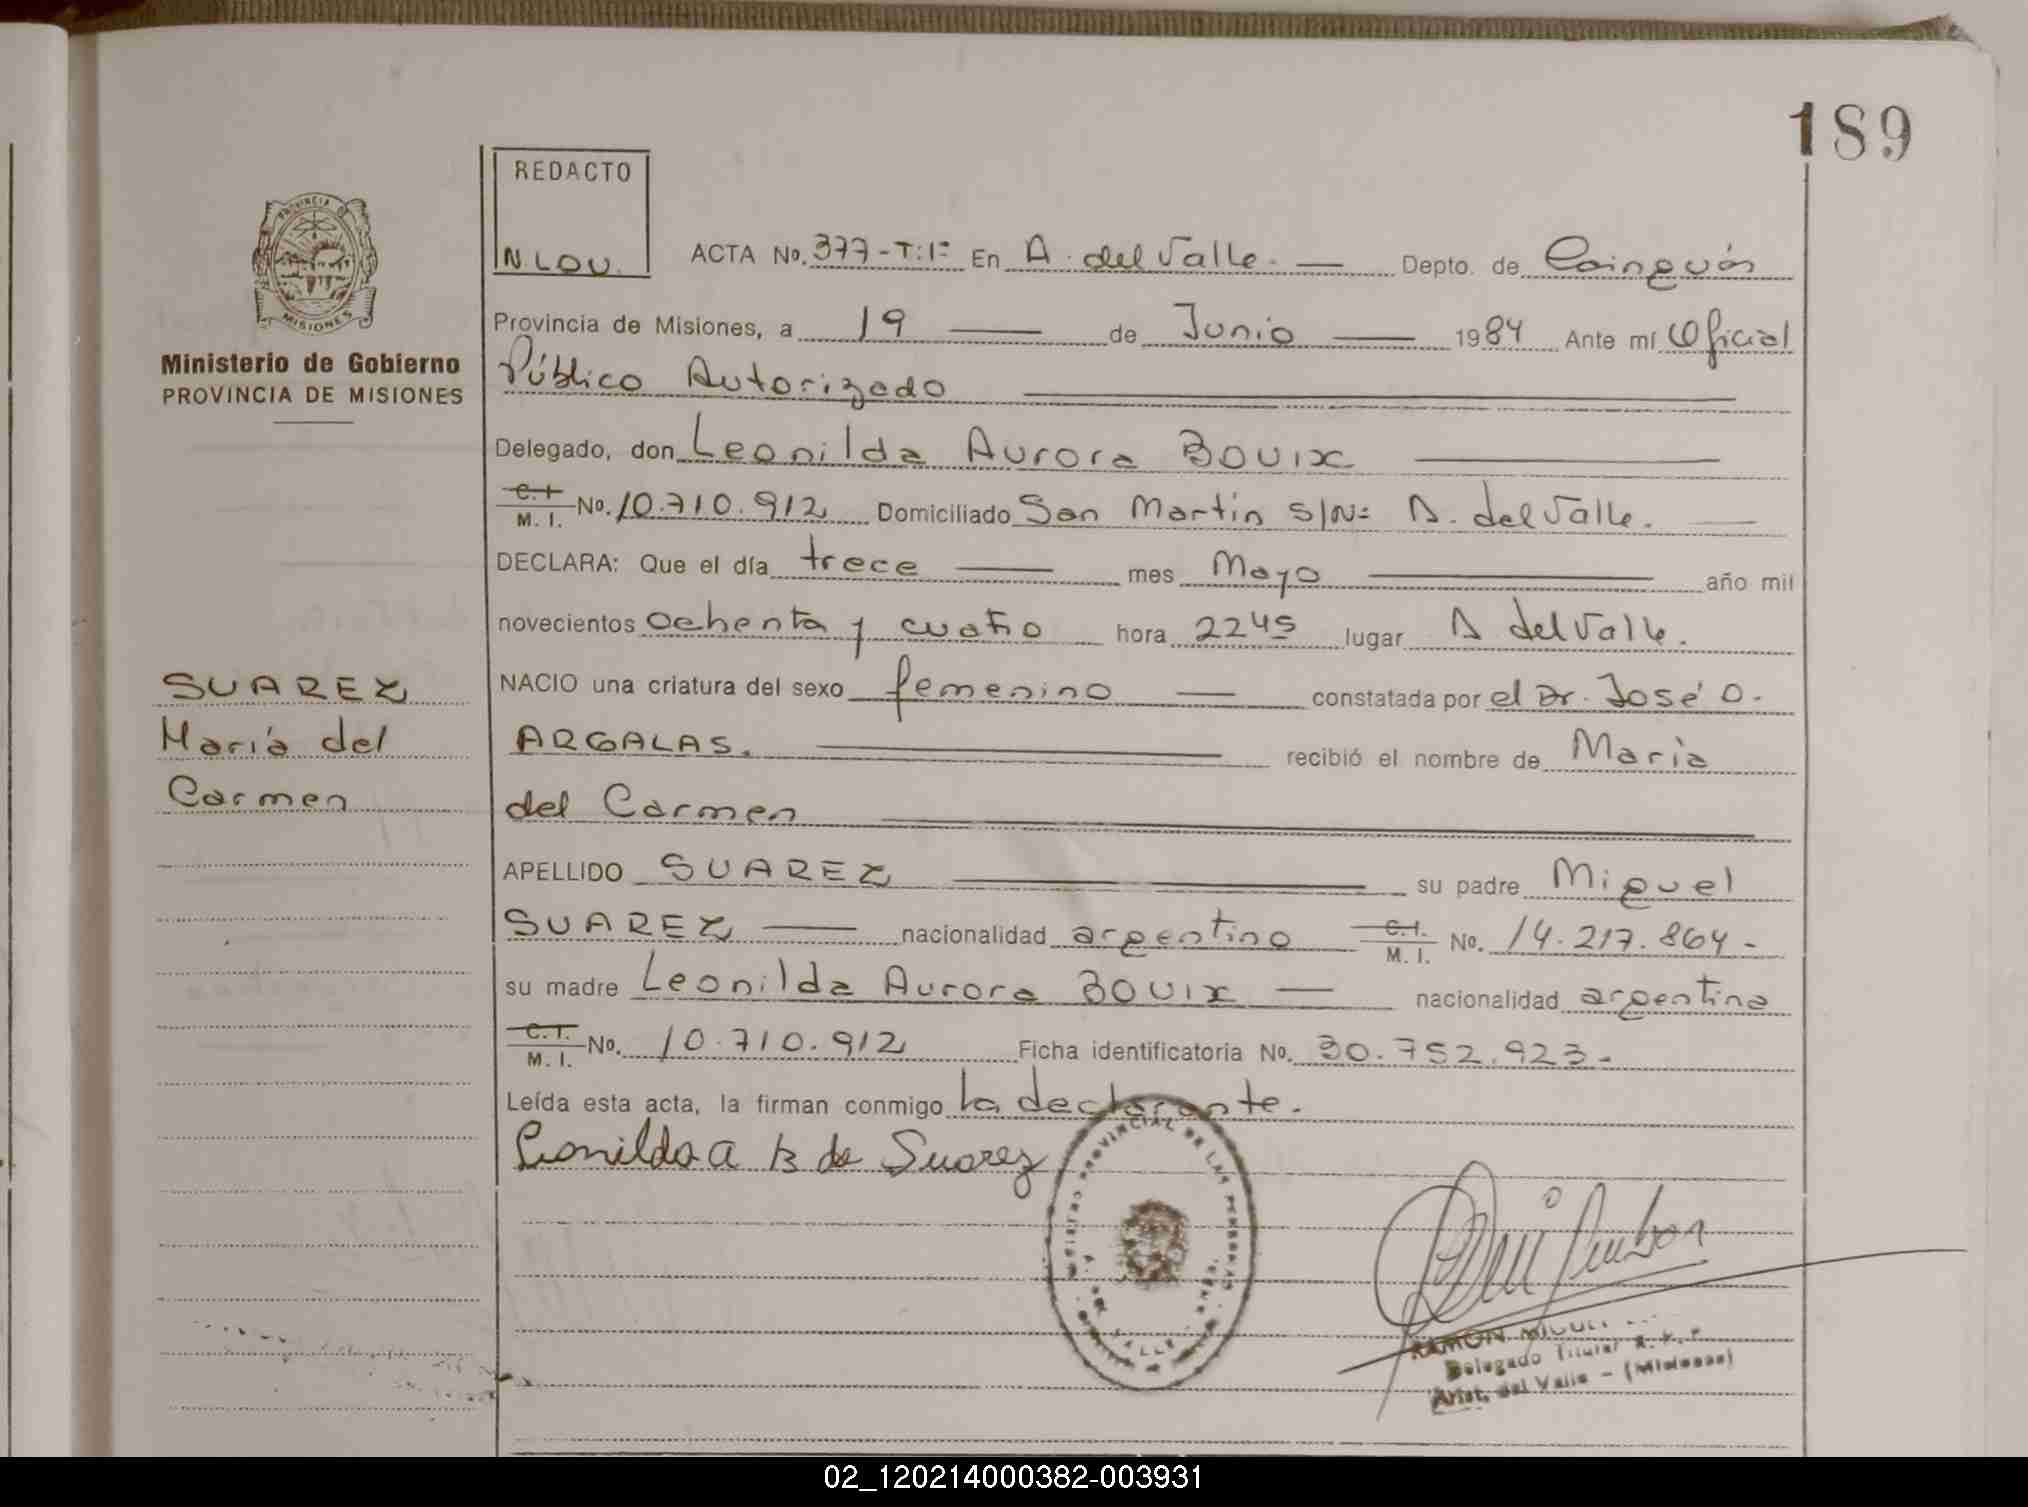 189
REDACTO
N. LOV.
PROVINCIA DE
MISIONES
Ministerio de Gobierno
PROVINCIA DE MISIONES
ACTA No. 377-T:1º En A. del Valle. — Depto. de Cainguás
Provincia de Misiones, a 19 — de Junio — 1984 Ante mí Oficial
Público Autorizado
Delegado, don Leonilda Aurora BOUIX
C.I. M. I. No. 10.710.912 Domiciliado San Martin S/Nº A. del Valle.
DECLARA: Que el día trece — mes Mayo — año mil
novecientos ochenta y cuatro hora 2245 lugar A del Valle.
NACIO una criatura del sexo femenino — constatada por el Dr. José O.
ARGALAS. — recibió el nombre de María
del Carmen
SUAREZ
María del
Carmen
APELLIDO SUAREZ — su padre Miguel
SUAREZ — nacionalidad argentino C.I. M. I. No. 14.217.864-
su madre Leonilda Aurora BOUIX — nacionalidad argentina
C.I. M. I. No. 10.710.912 Ficha identificatoria No. 30.752.923-
Leída esta acta, la firman conmigo la declarante.
Leonilda A B de Suarez
PROVINCIAL DE LAS PERSONAS
A. DEL VALLE
RAMON MIGUEL
Delegado Titular R. P. P.
Arist. del Valle - (Misiones)
02_120214000382-003931